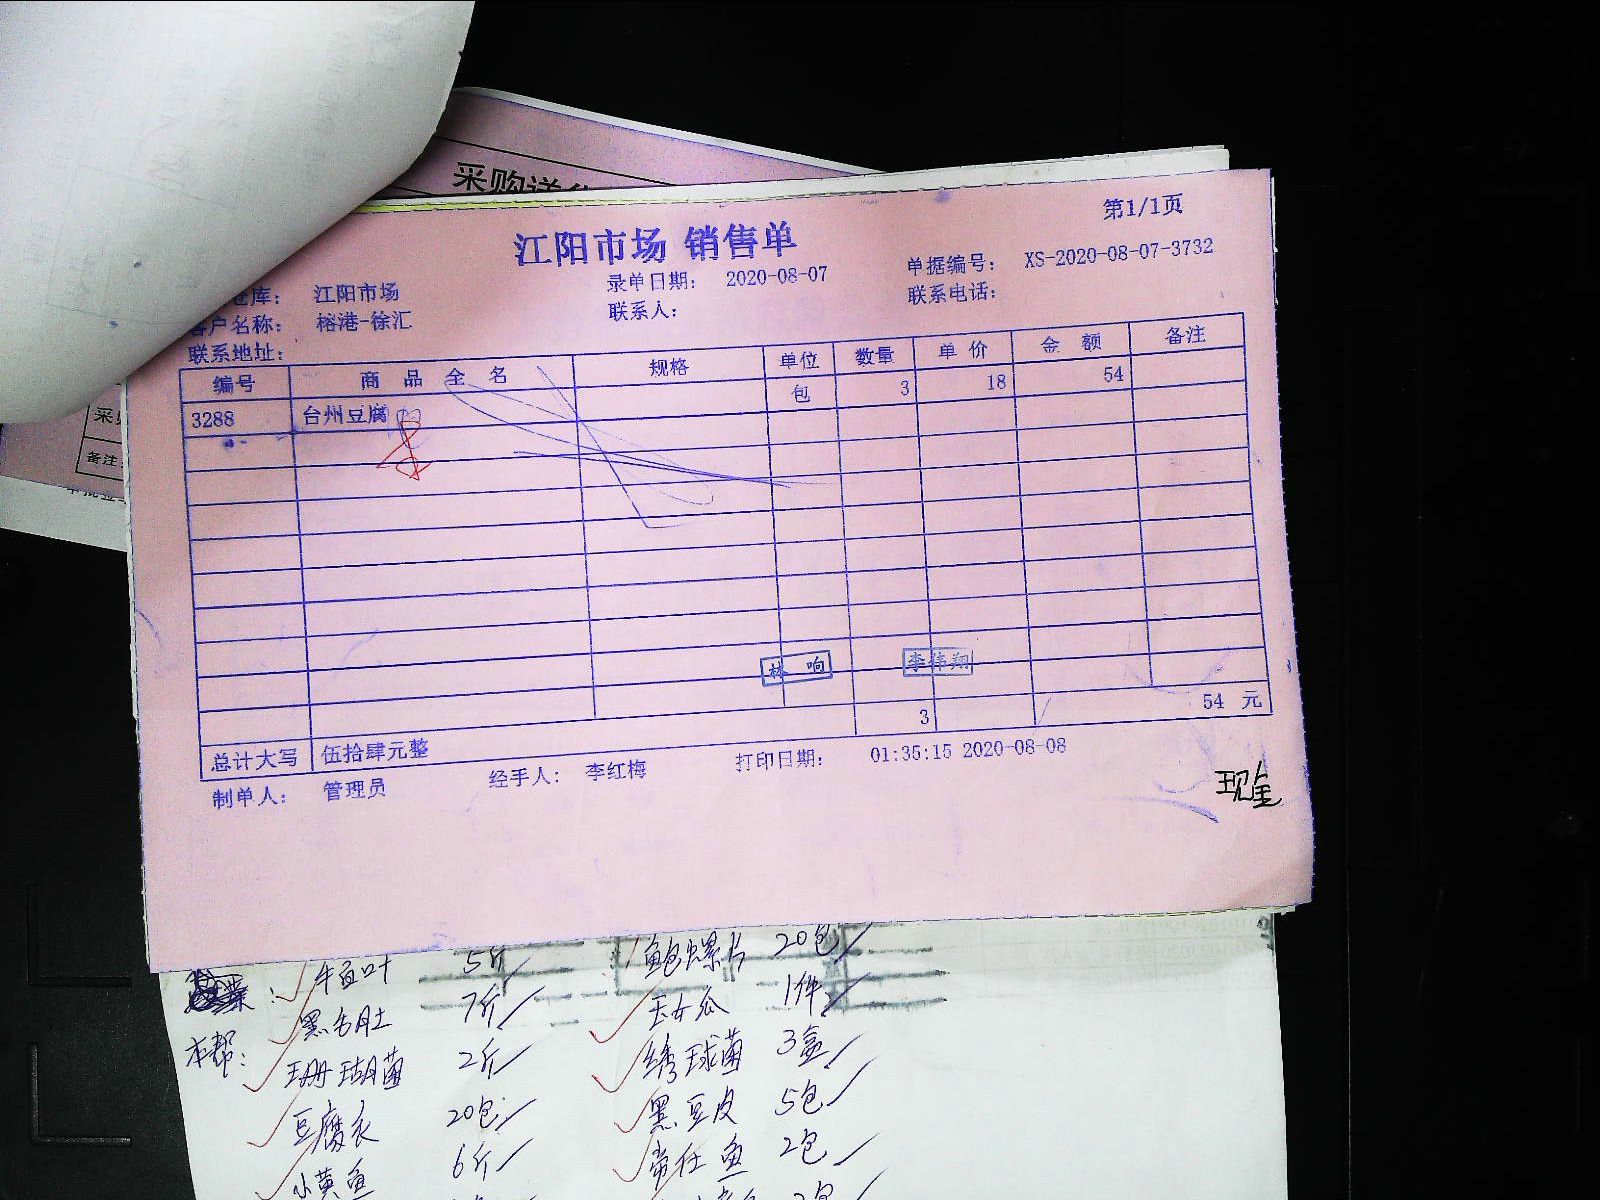 采购送
第1/1页
江阳市场 销售单
仓库： 江阳市场
录单日期： 2020-08-07
单据编号： XS-2020-08-07-3732
客户名称： 榕港-徐汇
联系人：
联系电话：
联系地址：
编号 商 品 全 名 规格 单位 数量 单 价 金 额 备注
3288 台州豆腐 包 3 18 54
林 响 李伟翔
3 54 元
总计大写 伍拾肆元整
制单人： 管理员 经手人： 李红梅 打印日期： 01:35:15 2020-08-08
现金
采购
备注
牛百叶 5斤 鲍螺片 20包
本帮： 黑毛肚 7斤 玉女瓜 1件
珊瑚菌 2斤 绣球菌 3盒
豆腐衣 20包 黑豆皮 5包
小黄鱼 6斤 2包